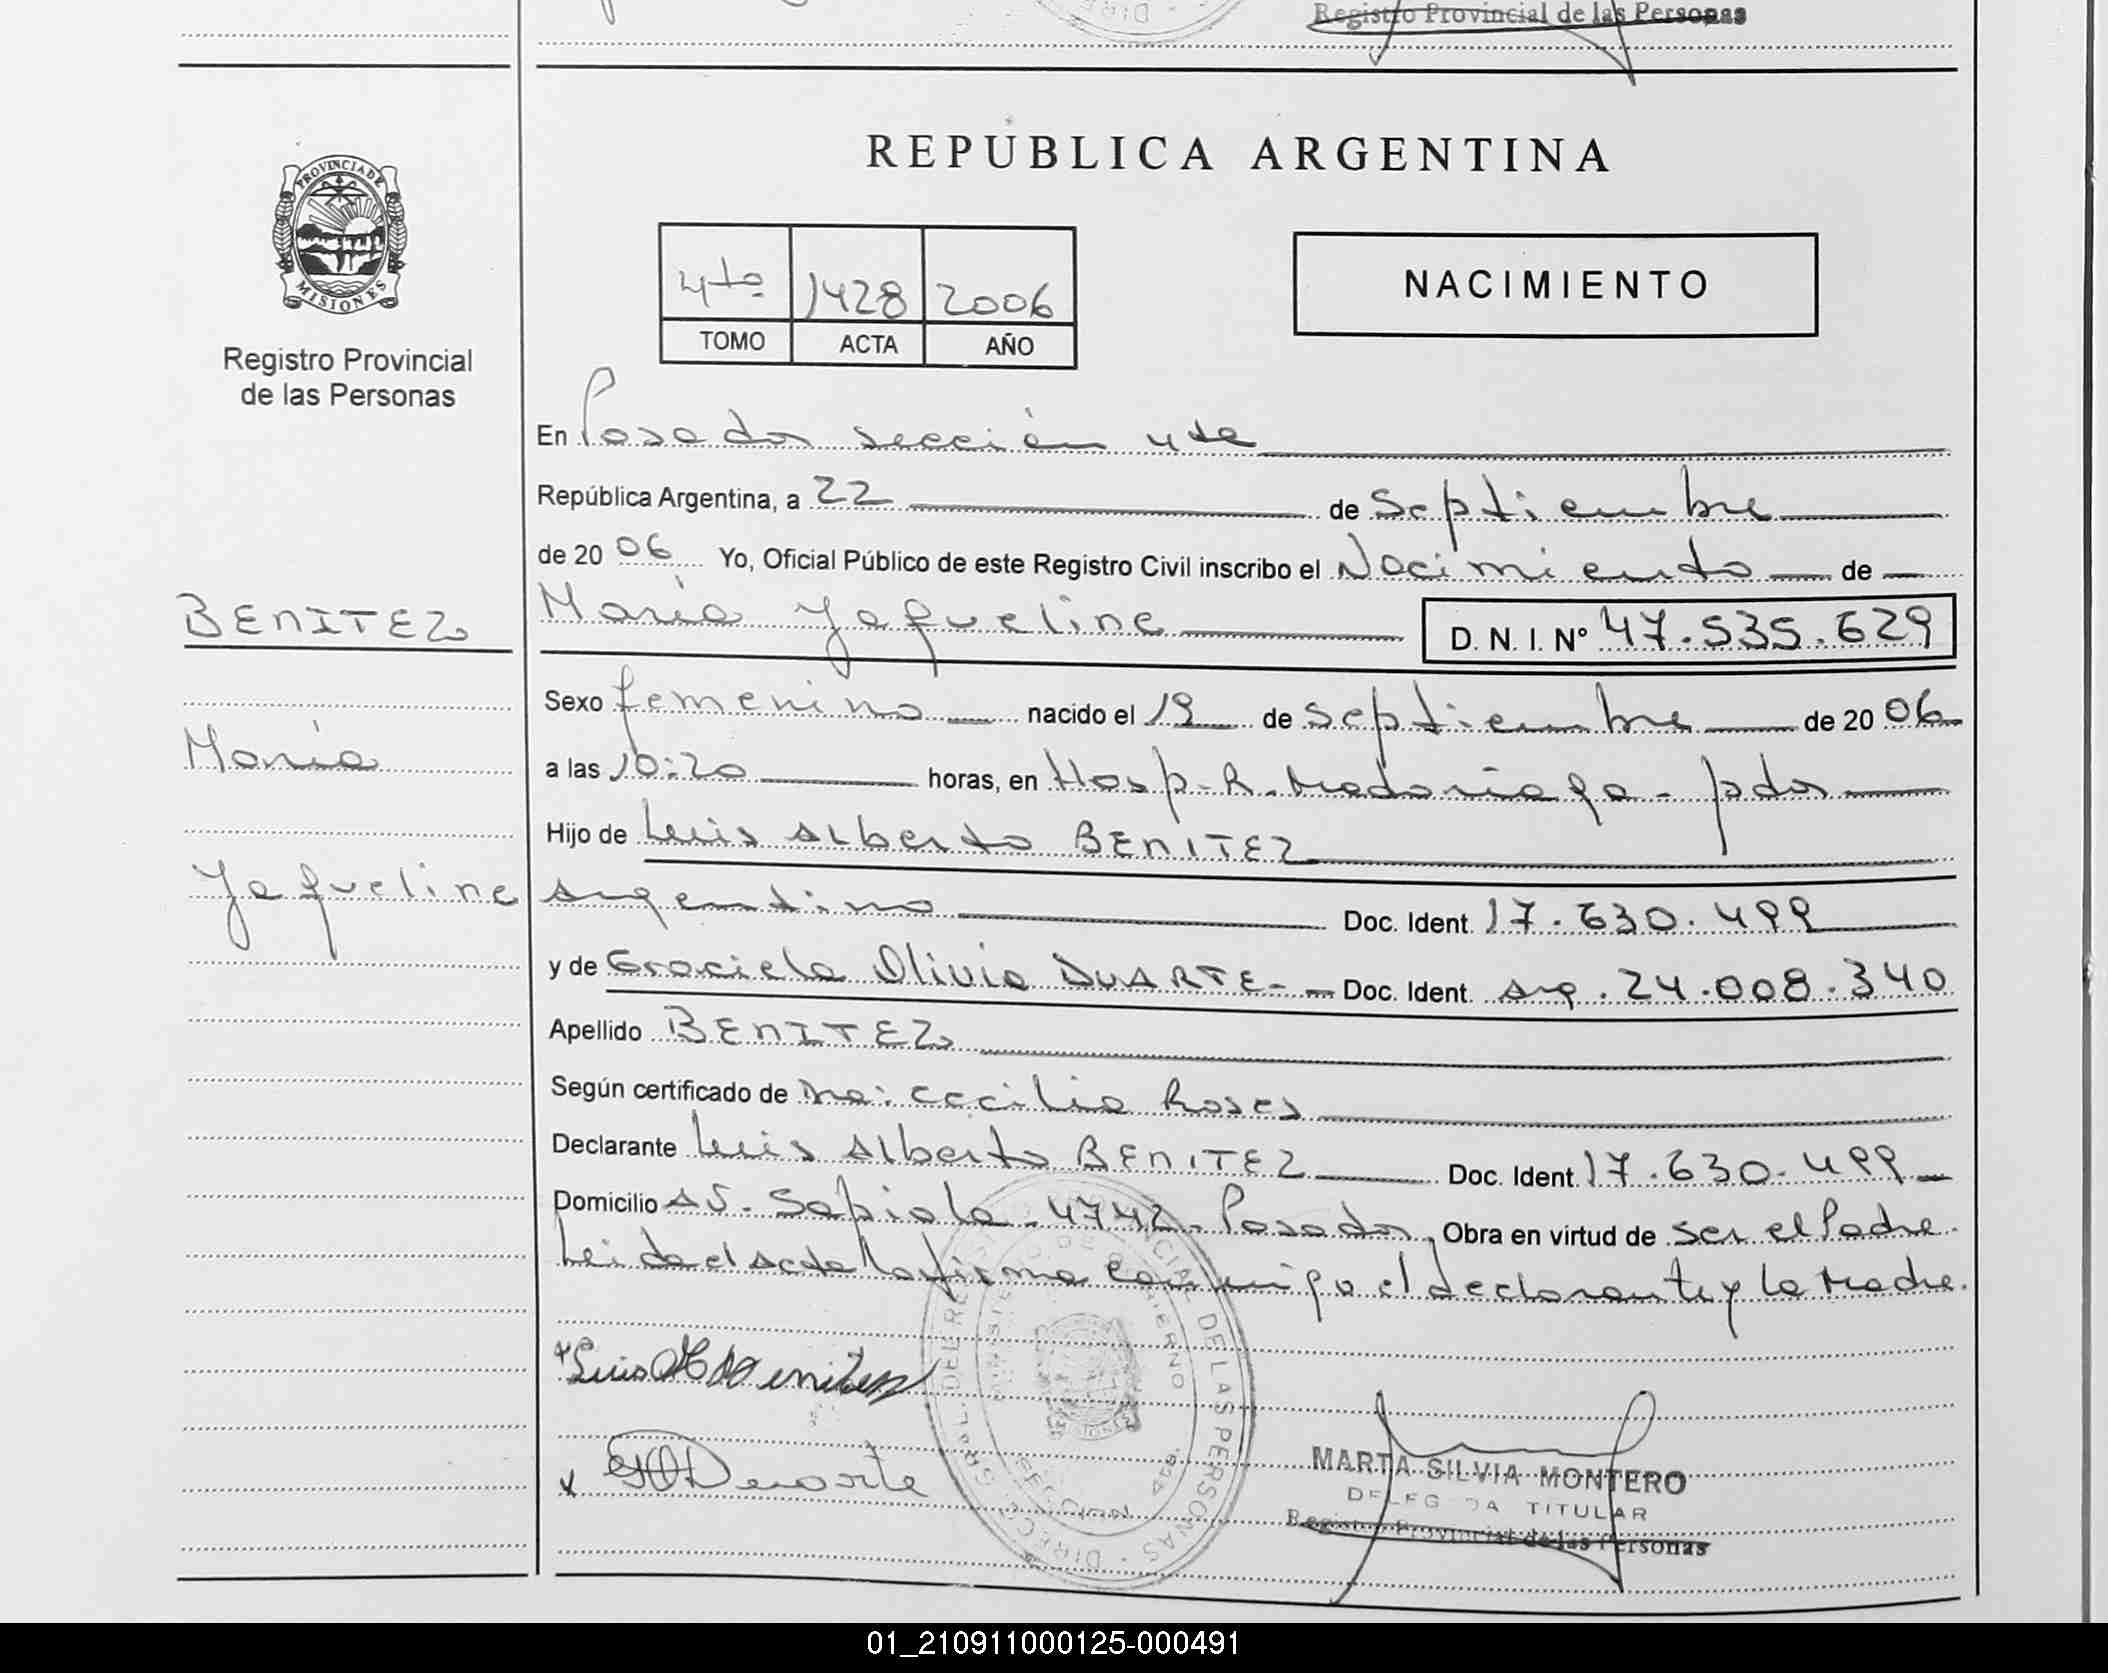 Registro Provincial de las Personas
REPÚBLICA ARGENTINA
PROVINCIA DE
MISIONES
Registro Provincial
de las Personas
4to 1428 2006
TOMO ACTA AÑO
NACIMIENTO
En Posadas sección 4ta
República Argentina, a 22 de Septiembre
de 2006 Yo, Oficial Público de este Registro Civil inscribo el Nacimiento de
BENITEZ
María Yaqueline D.N.I. Nº 47.535.629
Sexo femenino nacido el 19 de Septiembre de 2006
María
a las 10:20 horas, en Hosp. R. Madariaga - pdas
Hijo de Luis Alberto BENITEZ
Yaqueline
argentino Doc. Ident. 17.630.499
y de Graciela Olivia DUARTE - Doc. Ident. arg. 24.008.340
Apellido BENITEZ
Según certificado de Ma: Cecilia Roses
Declarante Luis Alberto BENITEZ Doc. Ident. 17.630.499
Domicilio AV. Sapiola - 4742 - Posadas, Obra en virtud de ser el Padre.
Leida el acta la firma conmigo el declarante y la Madre.
DEL REGISTRO PROVINCIAL DE LAS PERSONAS
MINISTERIO DE GOBIERNO
MISIONES
Luis A Benitez
G O Duarte
MARTA SILVIA MONTERO
DELEGADA TITULAR
Registro Provincial de las Personas
01_210911000125-000491